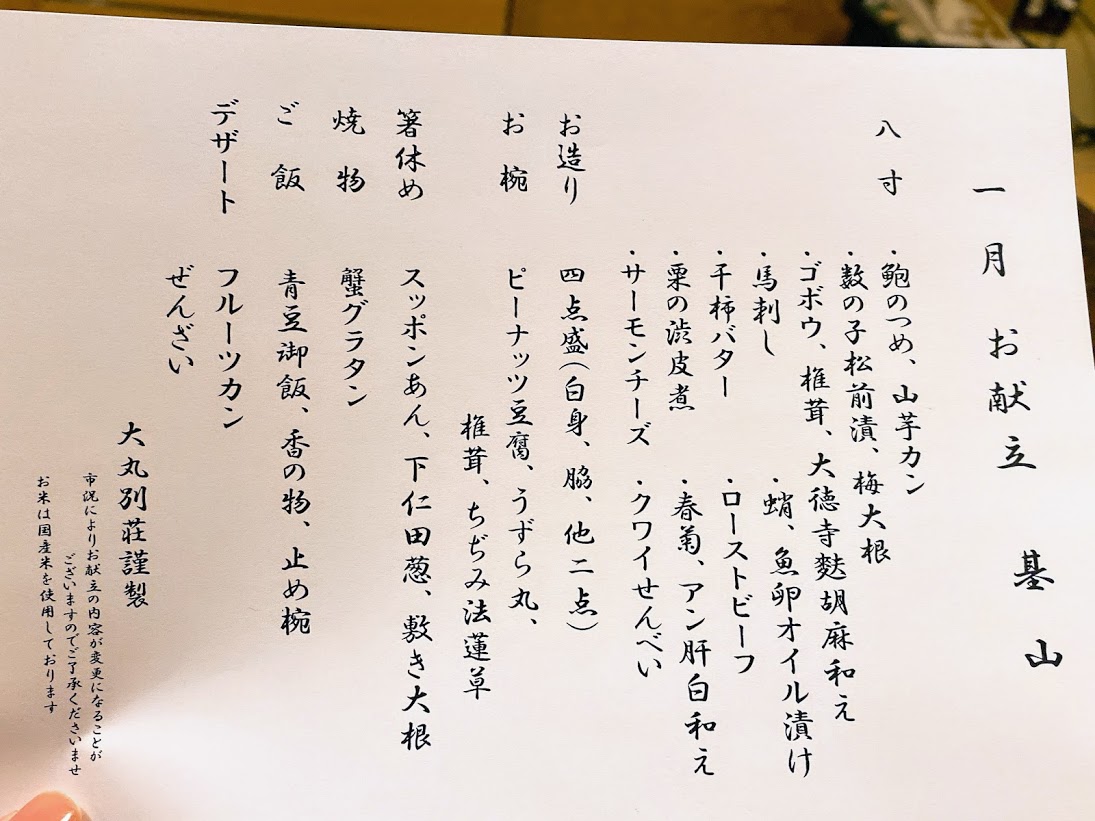 一月 お献立 基山
八寸
・鮑のつめ、山芋カン
・数の子松前漬、梅大根
・ゴボウ、椎茸、大徳寺麩胡麻和え
・馬刺し ・蛸、魚卵オイル漬け
・干柿バター ・ローストビーフ
・栗の渋皮煮 ・春菊、アン肝白和え
・サーモンチーズ ・クワイせんべい
お造り 四点盛(白身、脇、他二点)
お椀 ピーナッツ豆腐、うずら丸、
椎茸、ちぢみ法蓮草
箸休め スッポンあん、下仁田葱、敷き大根
焼物 蟹グラタン
ご飯 青豆御飯、香の物、止め椀
デザート フルーツカン
ぜんざい
大丸別荘謹製
市況によりお献立の内容が変更になることが
ございますのでご了承くださいませ
お米は国産米を使用しております